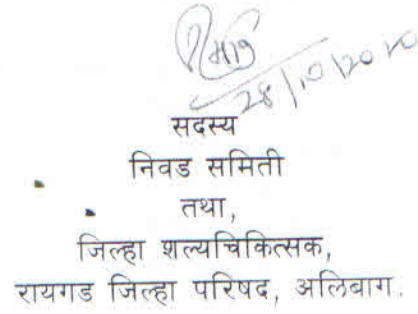 28/10/2020
सदस्य
निवड समिती
तथा,
जिल्हा शल्यचिकित्सक,
रायगड जिल्हा परिषद, अलिबाग.